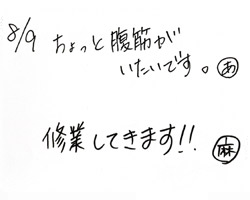 8/9 ちょっと腹筋が
いたいです。あ
修業してきます!! 麻